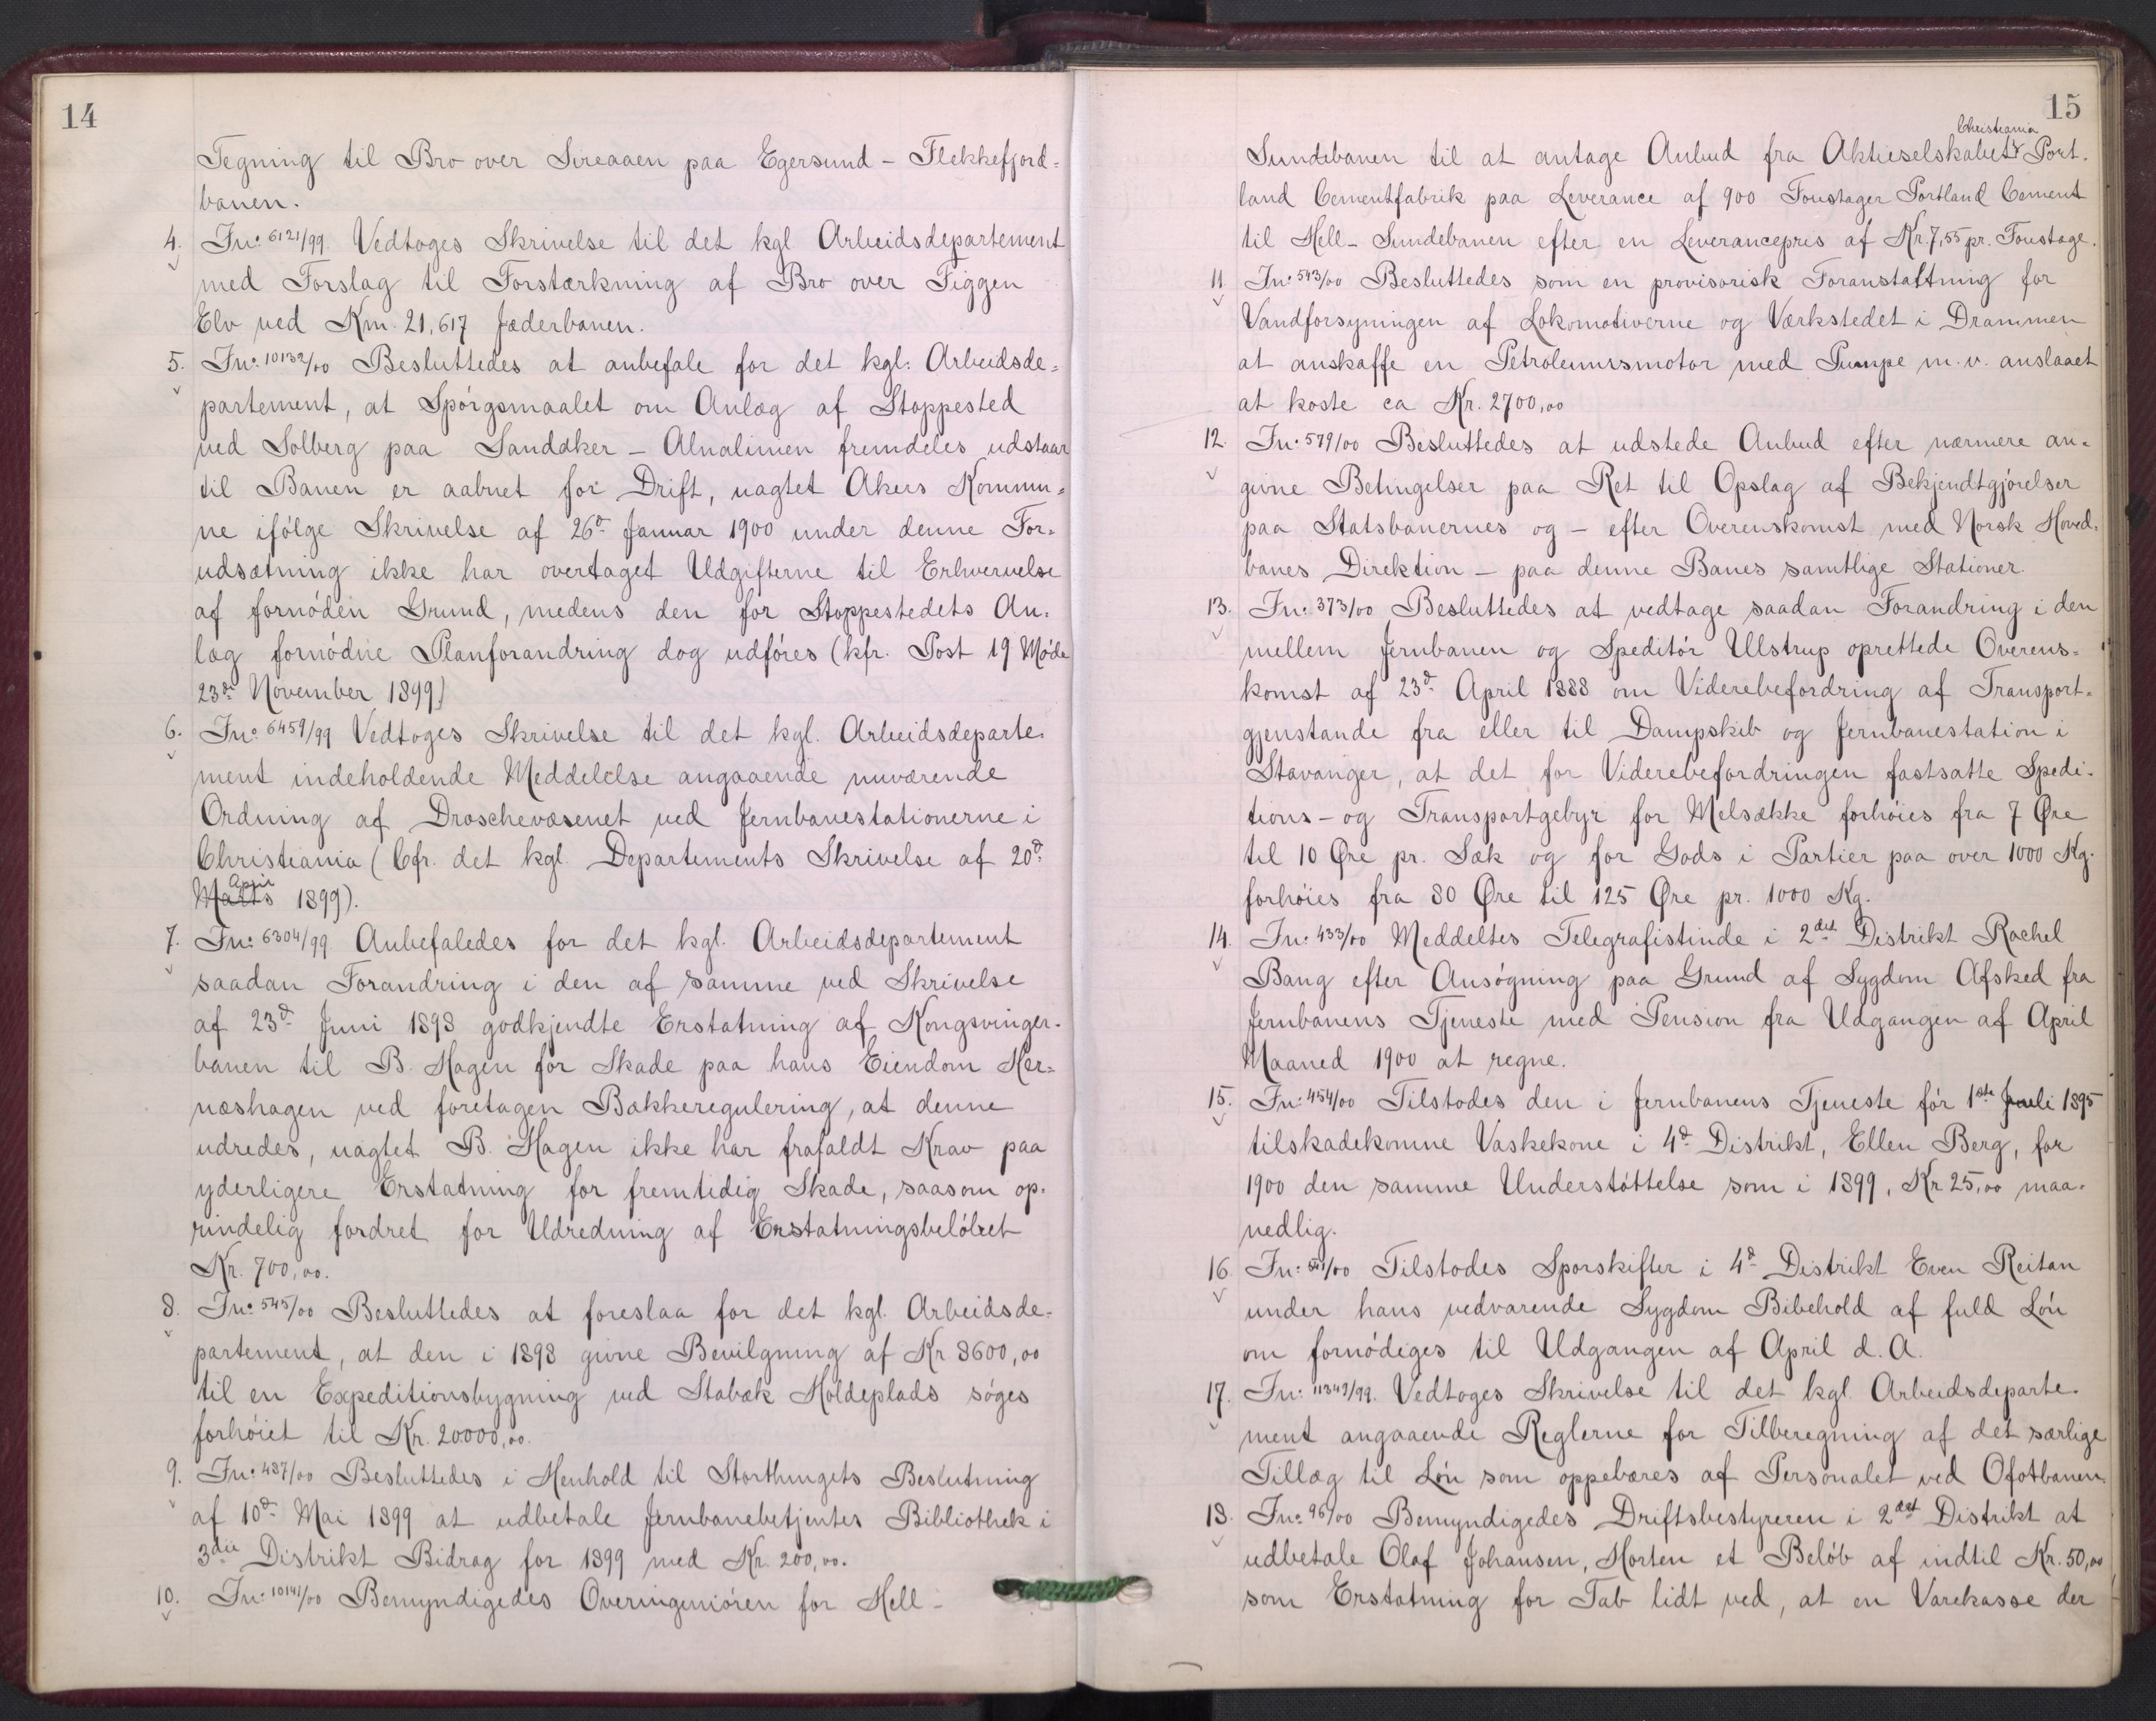 14
Tegning til Bro over Sireaaen paa Egersund - Flekkefjord=
banen.
4. Jn: 6121/99. Vedtoges Skrivelse til det kgl Arbeidsdepartement
med Forslag til Forstærkning af Bro over Figgen
Elv ved Km. 21,617 Jæderbanen.
5. Jn: 10132/00 Besluttedes at anbefale for det kgl. Arbeidsde=
partement, at Spørgsmaalet om Anlæg af Stoppested
ved Solberg paa Sandaker - Alnalinien fremdeles udstaar
til Banen er aabnet for Drift, uagtet Akers Kommu=
ne ifølge Skrivelse af 26d. Januar 1900 under denne For=
udsætning ikke har overtaget Udgifterne til Erhvervelse
af fornøden Grund, medens den for Stoppestedets An=
læg fornødne Planforandring dog udføres (kfr. Post 19 Møde
23d. November 1899)
6. Jn: 6459/99 Vedtoges Skrivelse til det kgl. Arbeidsdeparte=
ment indeholdende Meddelelse angaaende nuværende
Ordning af Droschevæsenet ved Jernbanestationerne i
Christiania (Cfr. det kgl. Departements Skrivelse af 20d.
Marts April 1899).
7. Jn: 6304/99. Anbefaledes for det kgl. Arbeidsdepartement
saadan Forandring i den af samme ved Skrivelse
af 23d. Juni 1898 godkjendte Erstatning af Kongsvinger=
banen til B. Hagen for Skade paa hans Eiendom Her=
næshagen ved foretagen Bakkeregulering, at denne
udredes, uagtet B. Hagen ikke har frafaldt Krav paa
yderligere Erstatning for fremtidig Skade, saasom op=
rindelig fordret for Udredning af Erstatningsbeløbet
Kr. 700,00.
8. Jn: 545/00 Besluttedes at foreslaa for det kgl. Arbeidsde=
partement, at den i 1898 givne Bevilgning af Kr 8600,00
til en Expeditionsbygning ved Stabæk Holdeplads søges
forhøiet til Kr. 20000,00.
9. Jn: 487/00 Besluttedes i Henhold til Storthingets Beslutning
af 10d. Mai 1899 at udbetale Jernbanebetjentes Bibliothek i
3die Distrikt Bidrag for 1899 med Kr. 200,00.
10. Jn: 10141/00 Bemyndigedes Overingeniøren for Hell -
15
Christiania
Sundebanen til at antage Anbud fra Aktieselskabet Port=
land Cementfabrik paa Leverance af 900 Foustager Portland Cement
til Hell - Sundebanen efter en Leverancepris af Kr. 7,55 pr. Foustage.
11 Jn: 543/00 Besluttedes som en provisorisk Foranstaltning for
Vandforsyningen af Lokomotiverne og Værkstedet i Drammen
at anskaffe en Petroleumsmotor med Pumpe m.v. anslaaet
at koste ca Kr. 2700,00
12. Jn: 579/00 Besluttedes at udstede Anbud efter nærmere an=
givne Betingelser paa Ret til Opslag af Bekjendtgjørelser
paa Statsbanernes og - efter Overenskomst med Norsk Hoved=
banes Direktion - paa denne Banes samtlige Stationer.
13. Jn: 373/00 Besluttedes at vedtage saadan Forandring i den
mellem Jernbanen og Speditør Ullstrup oprettede Overens=
komst af 23d. April 1888 om Viderebefordring af Transport=
gjenstande fra eller til Dampskib og Jernbanestation i
Stavanger, at det for Viderebefordringen fastsatte Spedi=
tions- og Transportgebyr for Melsække forhøies fra 7 Øre
til 10 Øre pr. Sæk og for Gods i Partier paa over 1000 Kg.
forhøies fra 80 Øre til 125 Øre pr. 1000 Kg.
14. Jn: 433/00 Meddeltes Telegrafistinde i 2det Distrikt Rachel
Bang efter Ansøgning paa Grund af Sygdom Afsked fra
Jernbanens Tjeneste med Pension fra Udgangen af April
Maaned 1900 at regne.
15. Jn: 454/00 Tilstodes den i Jernbanens Tjeneste før 1ste Juli 1895
tilskadekomne Vaskekone i 4d. Distrikt, Ellen Berg, for
1900 den samme Understøttelse som i 1899, Kr 25,00 maa=
nedlig.
16. Jn: /00 Tilstodes Sporskifter i 4d. Distrikt Even Reitan
under hans vedvarende Sygdom Bibehold af fuld Løn
om fornødiges til Udgangen af April d.A.
17. Jn: 11349/99. Vedtoges Skrivelse til det kgl. Arbeidsdeparte=
ment angaaende Reglerne for Tilberegning af det særlige
Tillæg til Løn som oppebæres af Personalet ved Ofotbanen.
18. Jn: 96/00 Bemyndigedes Driftsbestyreren i 2det Distrikt at
udbetale Olaf Johansen, Horten et Beløb af indtil Kr. 50,00
som Erstatning for Tab lidt ved, at en Varekasse der